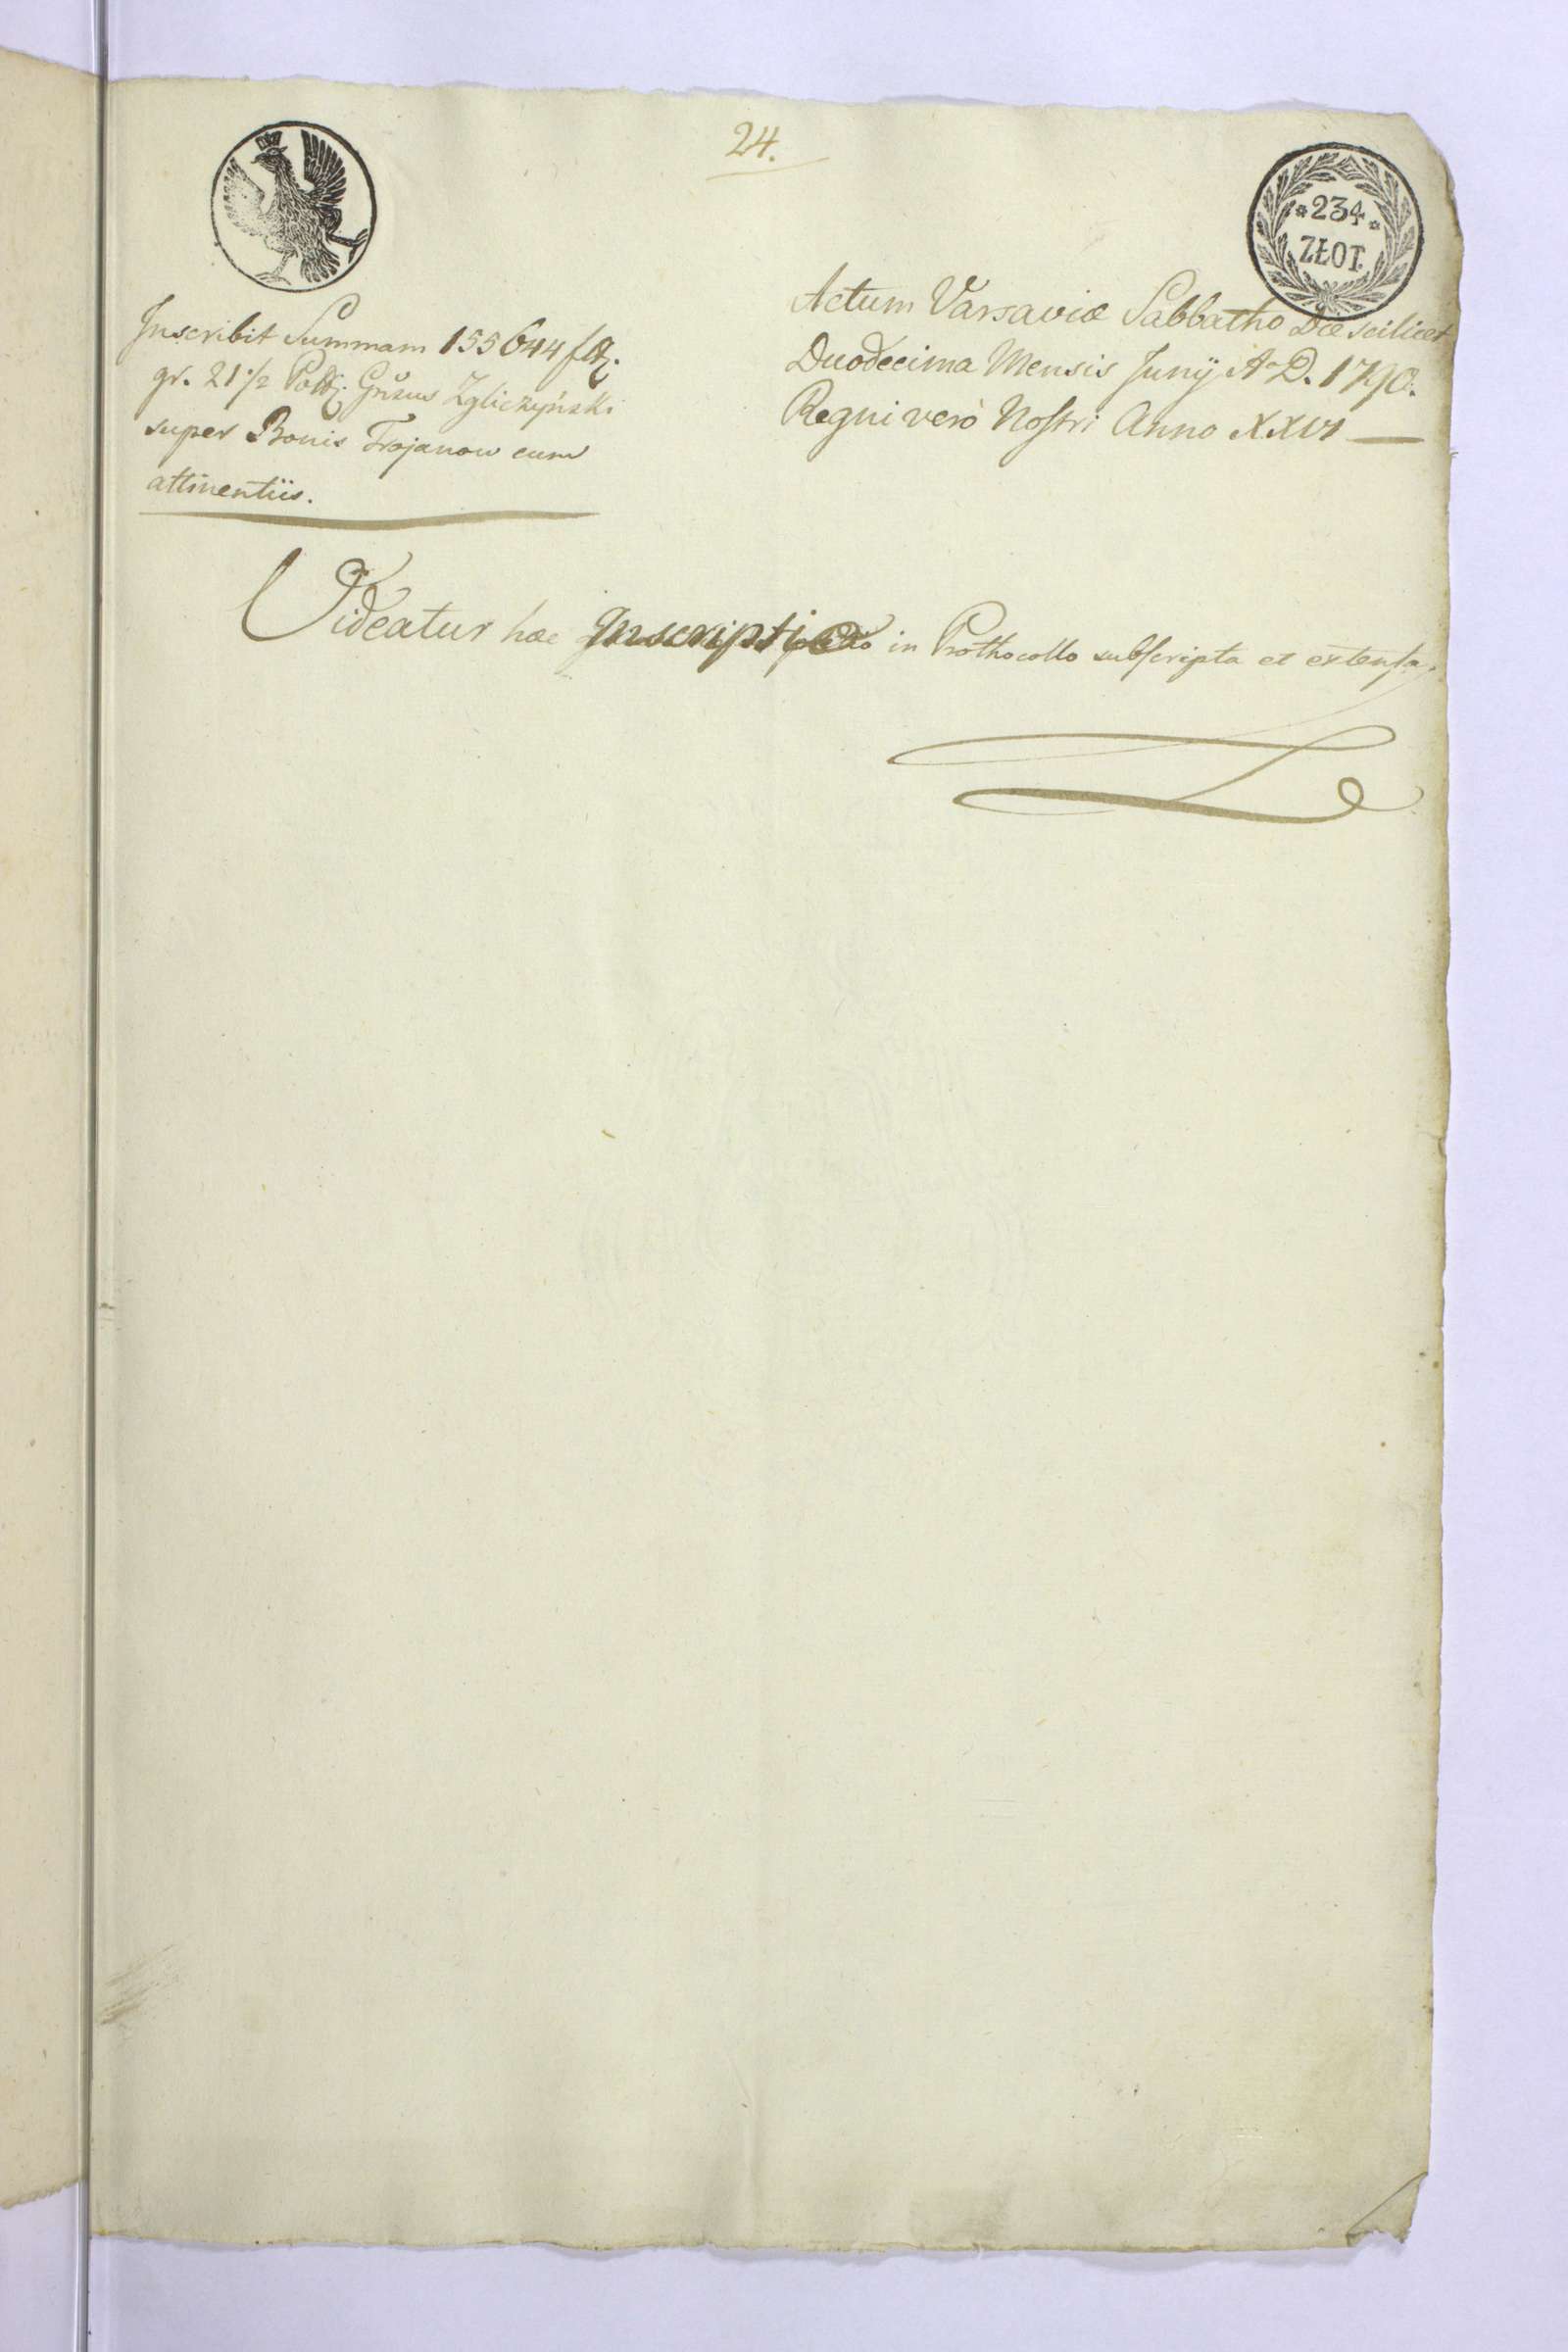 24.
* 234 *
ZŁOT.
Inscribit Summam 155644 flq.
gr. 21 1/2 Polq. Gnŝus Zgliczyński
super Bonis Trojanow cum
attinentiis.
Actum Varsaviæ Sabbatho Die scilicet
Duodecima Mensis Junÿ A. D. 1790.
Regni verò Nostri Anno XXVI
Videatur hæc Inscriptio in Prothocollo subscripta et extensa.